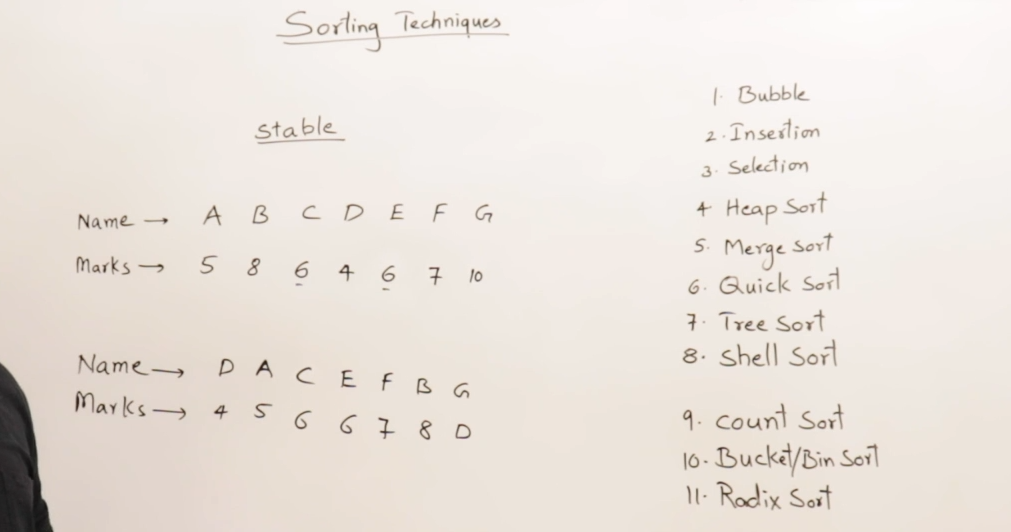 Sorting Techniques
Stable
Name → A B C D E F G
Marks → 5 8 6 4 6 7 10
Name → D A C E F B G
Marks → 4 5 6 6 7 8 D
1. Bubble
2. Insertion
3. Selection
4 Heap Sort
5. Merge Sort
6. Quick Sort
7. Tree Sort
8. Shell Sort
9. Count Sort
10. Bucket/Bin Sort
11. Radix Sort